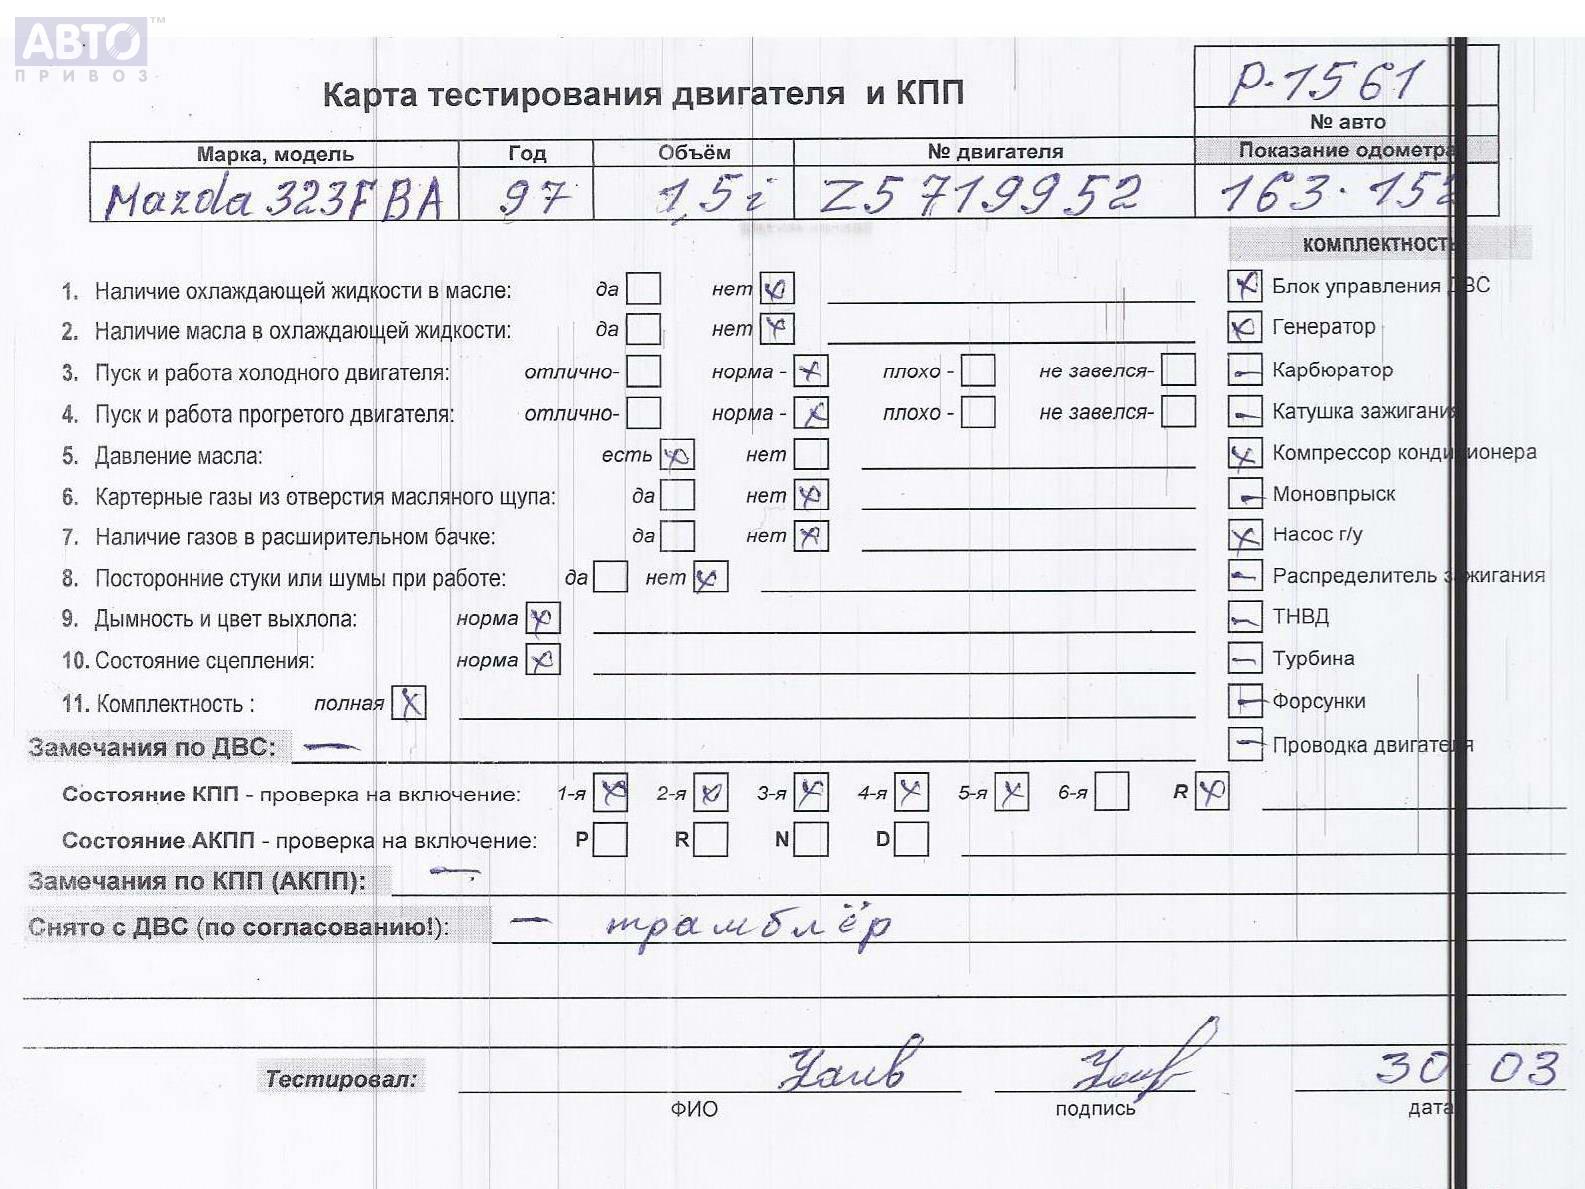 АВТО™
ПРИВОЗ
Карта тестирования двигателя и КПП
Р-1561
№ авто
Марка, модель Год Объём № двигателя Показание одометра
Mazda 323F BA 97 1,5i Z5 719952 163.152
комплектность
1. Наличие охлаждающей жидкости в масле: да нет x
x Блок управления ДВС
2. Наличие масла в охлаждающей жидкости: да нет x
x Генератор
3. Пуск и работа холодного двигателя: отлично- норма - x плохо - не завелся-
- Карбюратор
4. Пуск и работа прогретого двигателя: отлично- норма - x плохо - не завелся-
- Катушка зажигания
5. Давление масла: есть x нет
x Компрессор кондиционера
6. Картерные газы из отверстия масляного щупа: да нет x
- Моновпрыск
7. Наличие газов в расширительном бачке: да нет x
x Насос г/у
8. Посторонние стуки или шумы при работе: да нет x
- Распределитель зажигания
9. Дымность и цвет выхлопа: норма x
- ТНВД
10. Состояние сцепления: норма x
- Турбина
11. Комплектность : полная x
- Форсунки
Замечания по ДВС: —
- Проводка двигателя
Состояние КПП - проверка на включение: 1-я x 2-я x 3-я x 4-я x 5-я x 6-я R x
Состояние АКПП - проверка на включение: P R N D
Замечания по КПП (АКПП): —
Снято с ДВС (по согласованию!): — трамблёр
Тестировал: 30 03
ФИО подпись дата